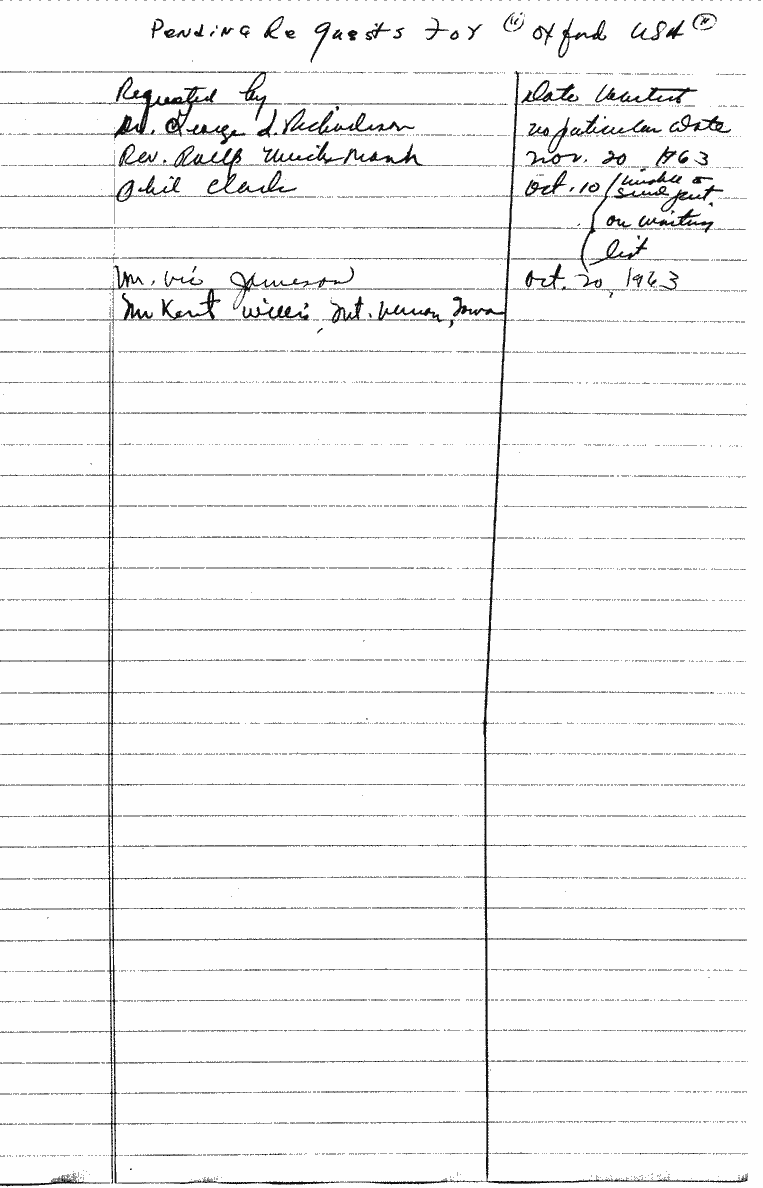 Pending Requests For "Oxford USA"
Requested by Date Wanted
Dr. George L. Richardson no paticular Date
Rev. Nov. 20 1963
Phil Clark Oct. 10 unable to
send put
on waiting
list
Mr. Vic Jameson Oct. 20, 1963
Mr Kent Willis, Mt. Vernon, Iowa